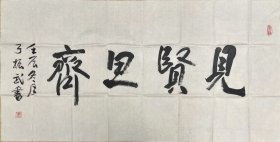 見賢思齊
壬辰冬月
于振武書